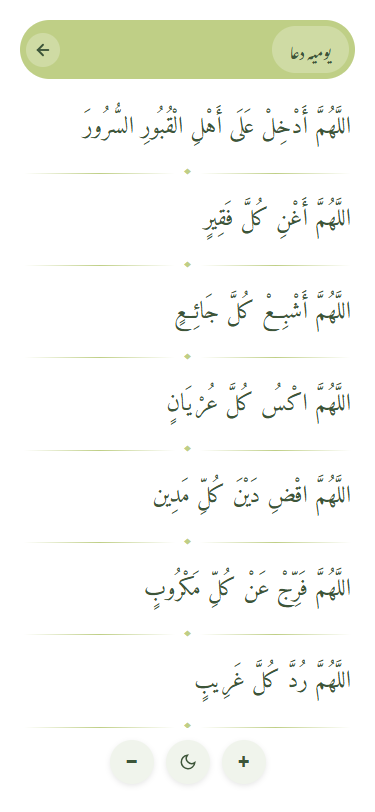 یومیہ دعا
اللَّهُمَّ أَدْخِلْ عَلَى أَهْلِ الْقُبُورِ السُّرُورَ
اللَّهُمَّ أَغْنِ كُلَّ فَقِيرٍ
اللَّهُمَّ أَشْبِعْ كُلَّ جَائِعٍ
اللَّهُمَّ اكْسُ كُلَّ عُرْيَانٍ
اللَّهُمَّ اقْضِ دَيْنَ كُلِّ مَدِين
اللَّهُمَّ فَرِّجْ عَنْ كُلِّ مَكْرُوبٍ
اللَّهُمَّ رُدَّ كُلَّ غَرِيبٍ